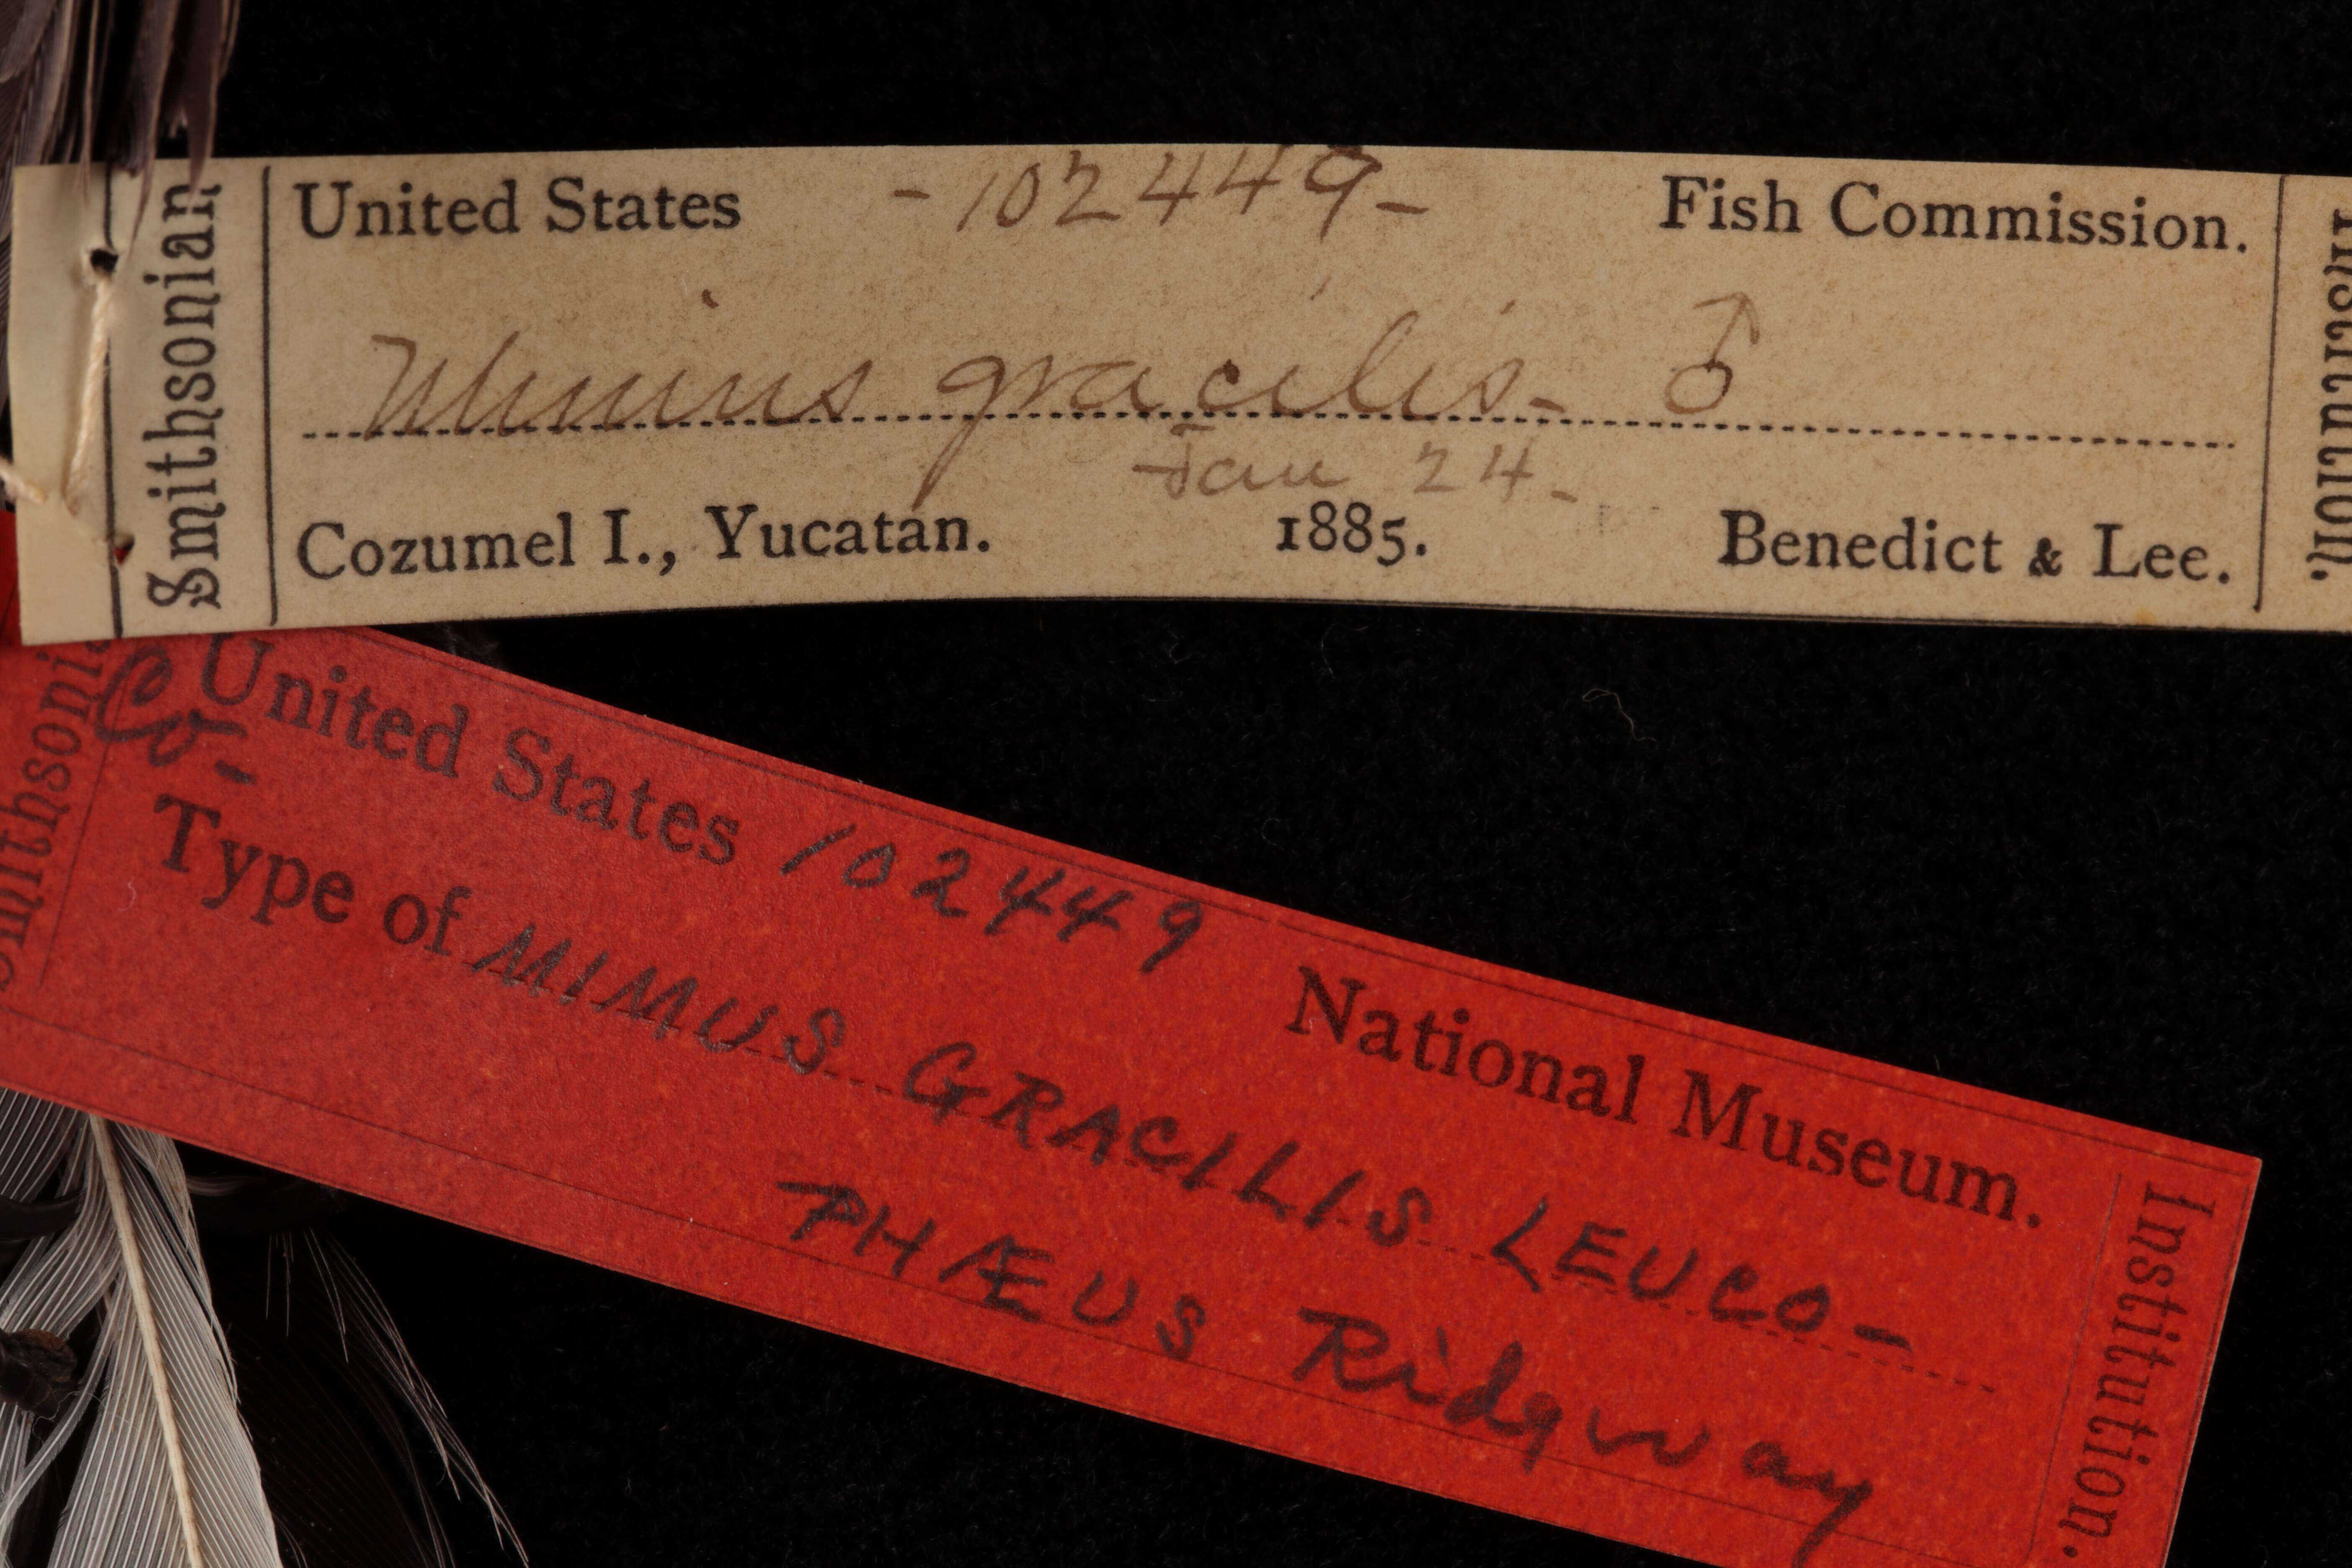 Smithsonian
United States -102449- Fish Commission.
Mimus gracilis- ♂
Jan 24-
Cozumel I., Yucatan. 1885. Benedict & Lee.
Institution.
Smithsonia
United States 102449 National Museum.
Co-
Type of MIMUS GRACILIS LEUCO-
PHÆUS Ridgway
Institution.